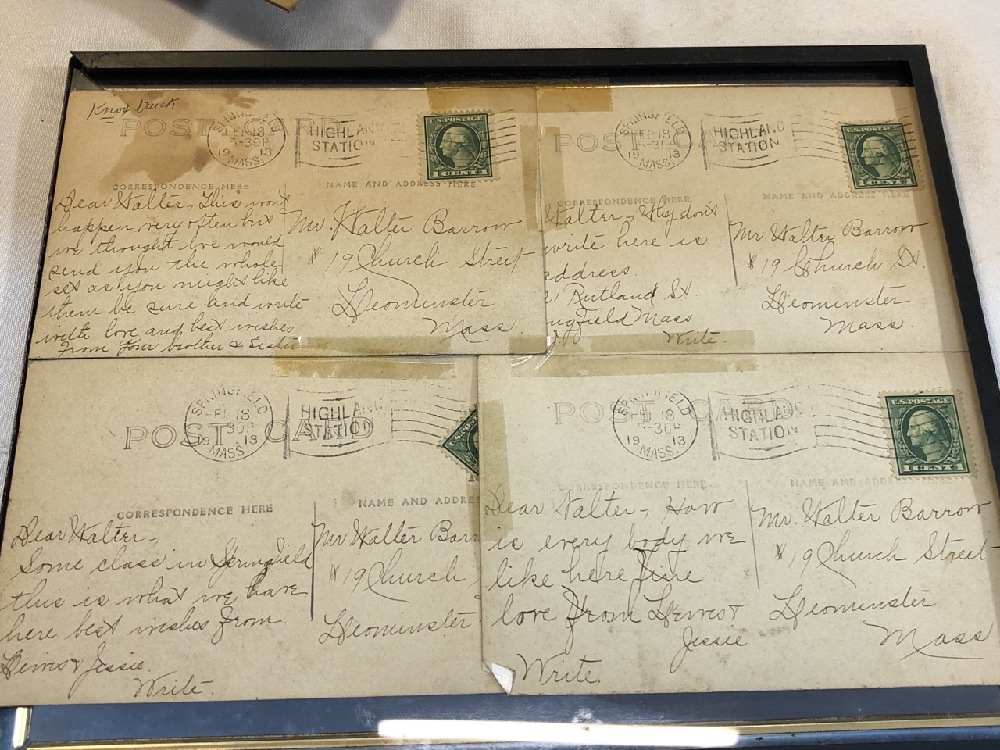 Knox Duck
POST CARD
SPRINGFIELD
FEB 18
-30P
1913
MASS.
HIGHLAND
STATION
U.S. POSTAGE
1 CENT 1
CORRESPONDENCE HERE
NAME AND ADDRESS HERE
Dear Walter, This wont
happen very often but
we thought we would
send you the whole
set as you might like
them be sure and write
with love and best wishes
From your brother & Sister
Mr. Walter Barrow
# 19 Church Street
Leominster
Mass.
POST CARD
SPRINGFIELD
FEB 18
1913
MASS.
HIGHLAND
STATION
U.S. POSTAGE
1 CENT 1
CORRESPONDENCE HERE
NAME AND ADDRESS HERE
Walter, Why dont
write here is
address.
Rutland St
ngfield Mass
Write.
Mr Walter Barrow
# 19 Church St.
Leominster
Mass.
POST CARD
SPRINGFIELD
FEB 18
1913
MASS.
HIGHLAND
STATION
CORRESPONDENCE HERE
NAME AND ADDRE
Dear Walter,
Some class in Springfield
this is what we have
here best wishes from
Lewis & Jessie.
Write.
Mr Walter Barr
# 19 Church
Leominster
POST CARD
SPRINGFIELD
FEB 18
-30P
1913
MASS.
HIGHLAND
STATION
U.S. POSTAGE
1 CENT 1
CORRESPONDENCE HERE
NAME AND ADDRESS HERE
Dear Walter, How
is every body we
like here fine
love from Lewis &
Jessie
Write.
Mr. Walter Barrow
# 19 Church Street
Leominster
Mass